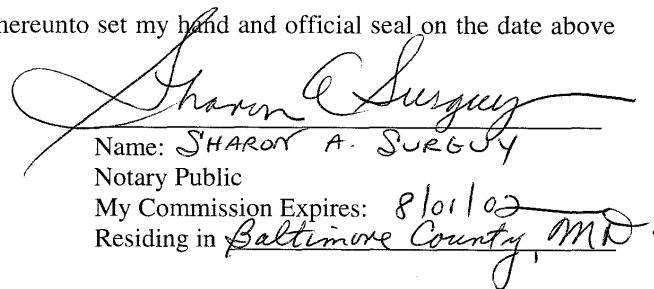 hereunto set my hand and official seal on the date above
Sharon A Surguy
Name: SHARON A. SURGUY
Notary Public
My Commission Expires: 8/01/02
Residing in Baltimore County, MD.